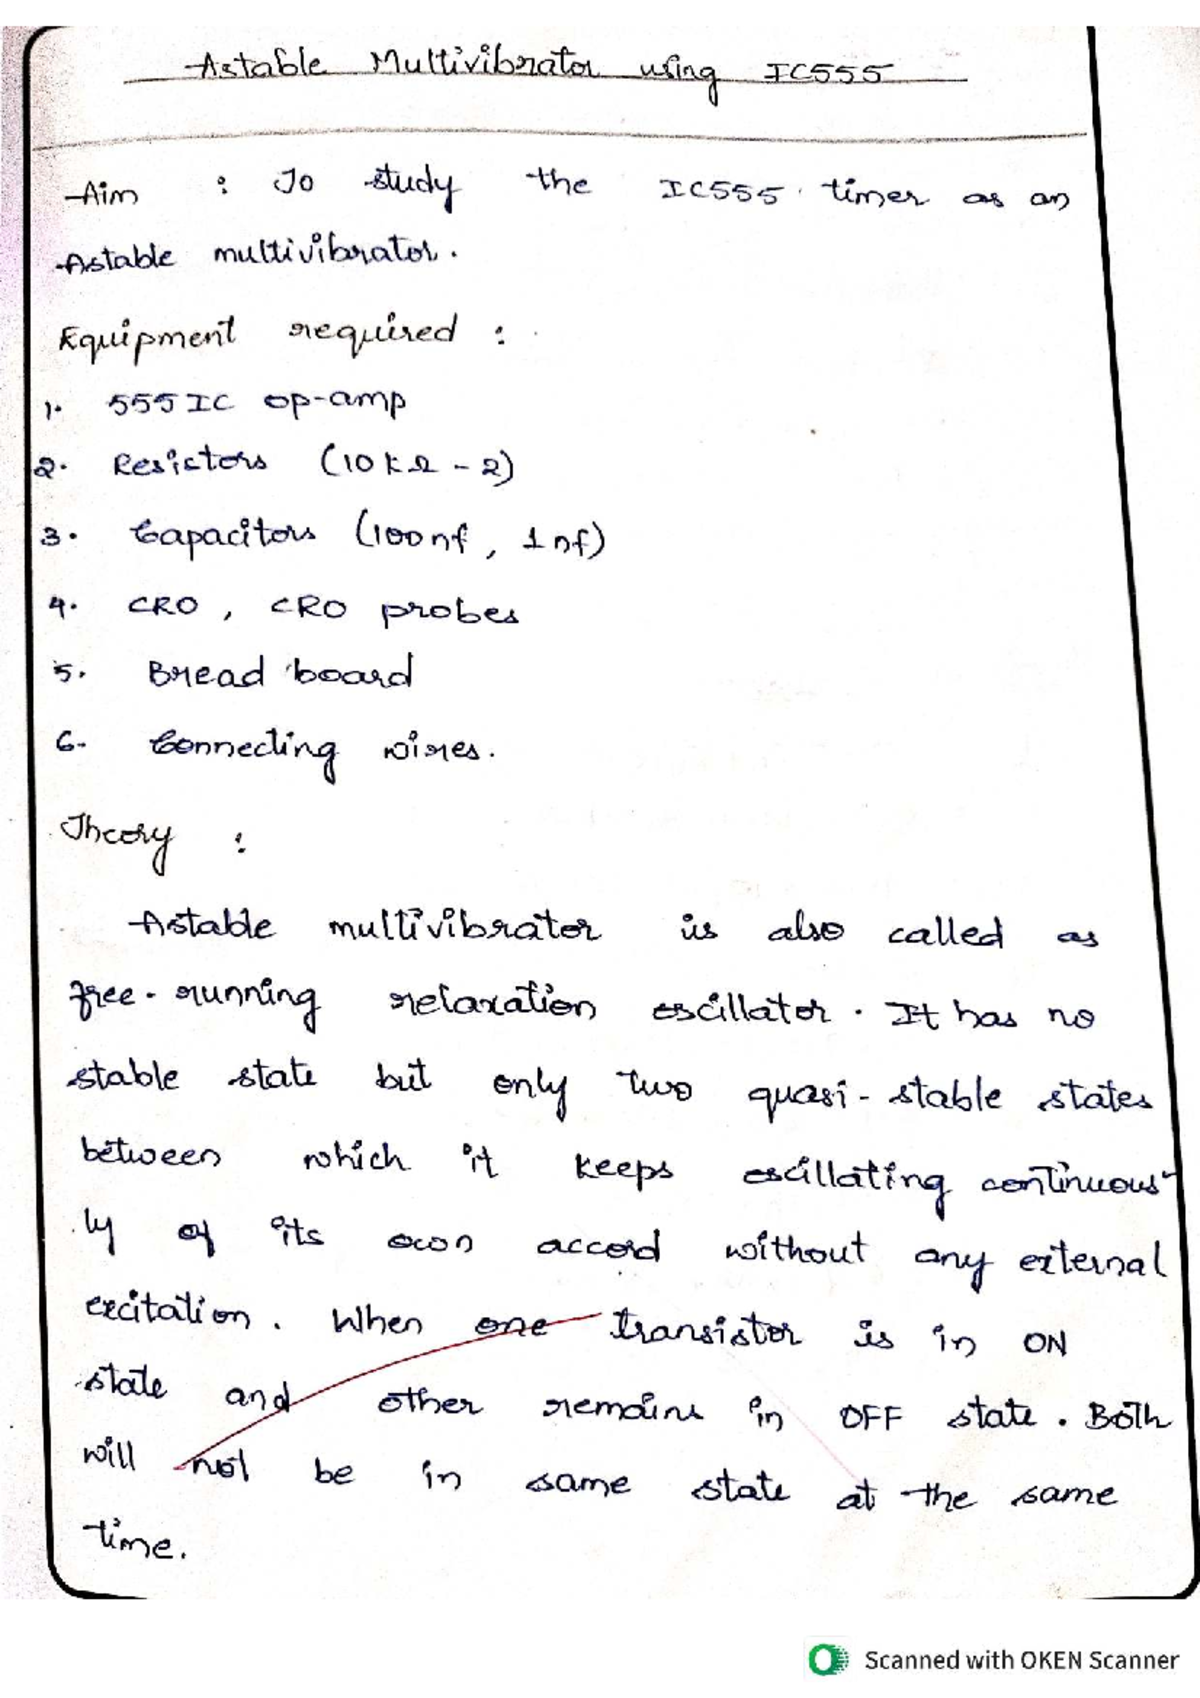 Astable Multivibrator using IC555
Aim : To study the IC555 timer as an
Astable multivibrator.
Equipment required :
1. 555 IC op-amp
2. Resictors (10kΩ - 2)
3. Capacitors (100nf, 1nf)
4. CRO, CRO probes
5. Bread board
6. Connecting wires.
Theory :
Astable multivibrator is also called as
free-running relaxation oscillator. It has no
stable state but only two quasi-stable states
between which it keeps oscillating continuous-
ly of its own accord without any external
excitation. When one transistor is in ON
state and other remains in OFF state. Both
will not be in same state at the same
time.
Scanned with OKEN Scanner